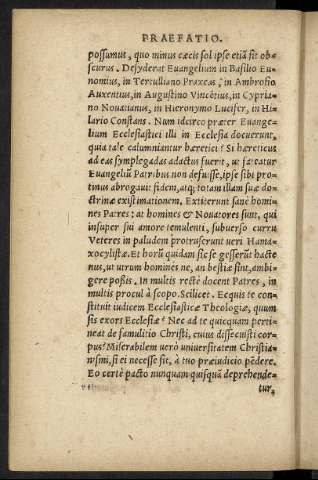 PRAEFATIO.
possumus, quo minus cæcis sol ipse etiã sit ob-
scurus. Desyderat Euangelium in Basilio Eu-
nomius, in Tertulliano Praxeas, in Ambrosio
Auxentius, in Augustino Vincẽtius, in Cypria-
no Nouatianus, in Hieronymo Lucifer, in Hi-
lario Constans. Num idcirco præter Euange-
lium Ecclesiastici illi in Ecclesia docuerunt,
quia tale calumniantur hæretici? Si hæreticus
ad eas symplegadas adactus fuerit, ut fateatur
Euangeliũ Patribus non defuisse, ipse sibi pro-
tinus abrogauit fidem, atq; totam illam suæ do-
ctrinæ existimationem. Extiterunt sanè homi-
nes Patres: at homines & Nouatores sunt, qui
insuper sui amore temulenti, subuerso curru
Veteres in paludem protruserunt veri Hama-
xocylistæ. Et horũ quidam sic se gesserũt hacte
nus, ut utrum homines ne, an bestiæ sint, ambi-
gere poßis. In multis rectè docent Patres, in
multis procul à scopo. Scilicet. Ecquis te con-
stituit iudicem Ecclesiasticæ Theologiæ, quum
sis exors Ecclesiæ? Nec ad te quicquam perti-
neat de famulitio Christi, cuius dissecuisti cor-
pus? Miserabilem uerò uniuersitatem Christia-
nismi, si ei necesse sit, à tuo præiudicio pẽdere.
Eo certè pacto nunquam quisquã deprehende-
tur,